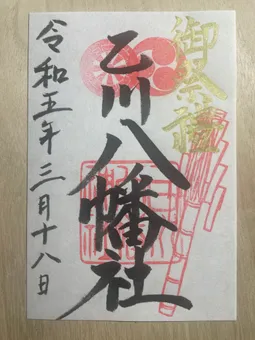 御祭禮
乙川八幡社
令和五年三月十八日